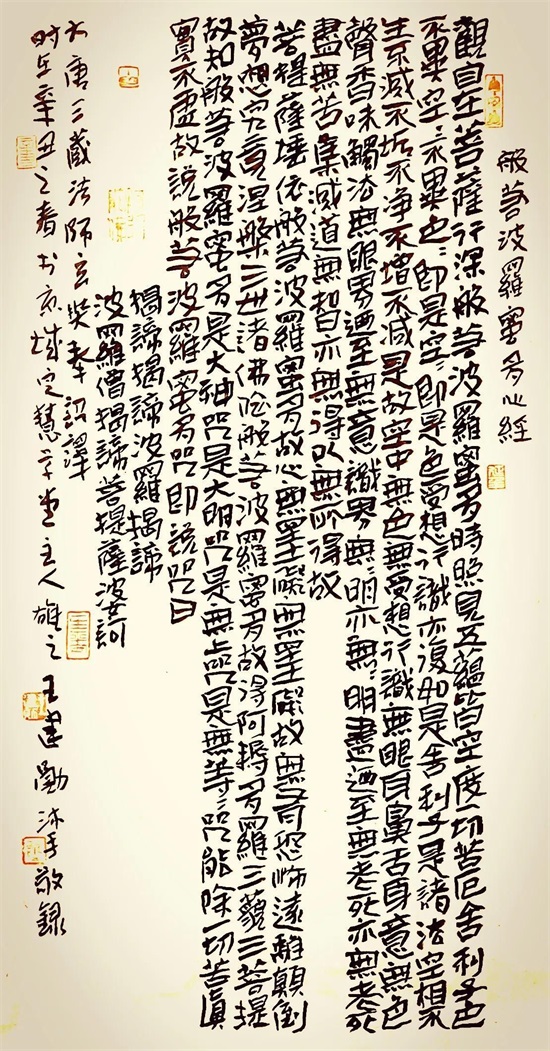 般若波羅蜜多心經
觀自在菩薩行深般若波羅蜜多時照見五蘊皆空度一切苦厄舍利子色
不異空〻不異色〻即是空〻即是色受想行識亦復如是舍利子是諸法空相不
生不滅不垢不净不增不減是故空中無色無受想行識無眼耳鼻舌身意無色
聲香味觸法無眼界迺至無意識界無〻明亦無〻明盡迺至無老死亦無老死
盡無苦集滅道無智亦無得以無所得故
菩提薩埵依般若波羅蜜多故心無罣礙無罣礙故無有恐怖遠離顛倒
夢想究竟涅槃三世諸佛依般若波羅蜜多故得阿耨多羅三藐三菩提
故知般若波羅蜜多是大神咒是大明咒是無上咒是無等〻咒能除一切苦真
實不虛故說般若波羅蜜多咒即說咒曰
揭諦揭諦波羅揭諦
波羅僧揭諦菩提薩婆訶
大唐三藏法師玄奘奉詔譯
时在辛丑之春於京城定慧草堂主人雄之王建勛沐手敬錄